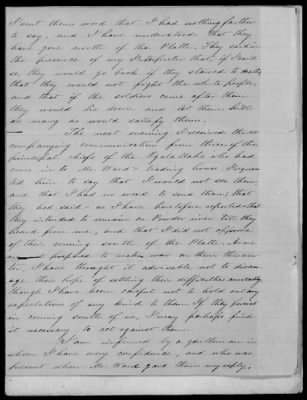 I sent them word that I had nothing farther
to say, and I have understood that they
have gone north of the Platte. They said in
the presence of my Interpreter that if I said
so, they would go back if they starved to death,
that they would not fight the white people,
and that if the soldiers came after them
they would lie down and let them kill
as many as would satisfy them.
The next evening I received the ac-
companying communication from three of the
principal chiefs of the Ogalalahs who had
come in to Mr. Ward's trading house. I reques-
ted him to say that I would not see them
and that I had no word to send them, that
they had said as I have heretofore reported that
they intended to remain on Powder river till they
heard from me, and that I did not approve
of their coming south of the Platte. As we
proposed to make war on them this win-
ter, I have thought it advisable not to discour-
age their hope of settling their difficulties amicably
though I have been careful not to hold out any
expectation of any kind to them. If they persist
in coming south of us, I may perhaps find
it necessary to act against them.
I am informed by a gentleman in
whom I have every confidence, and who was
present when Mr. Ward gave them my reply,